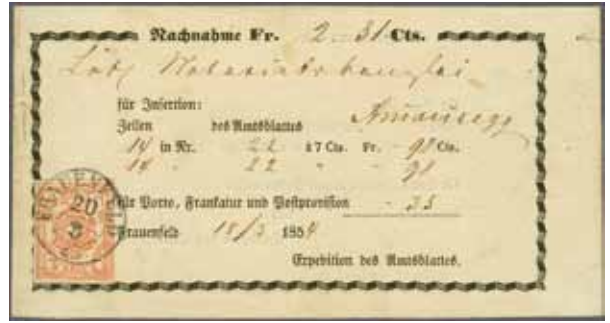 Nachnahme Fr. 2. 31 Cts.
Löbl. Notariatskanzlei
für Insertion:
Zeilen des Amtsblattes
14 in Nr. 22 à 7 Cts. Fr. - 98 Cts.
14 " 22 " - 98
für Porto, Frankatur und Postprovision - 35
Frauenfeld 18/3 1854
Expedition des Amtsblattes.
20
3